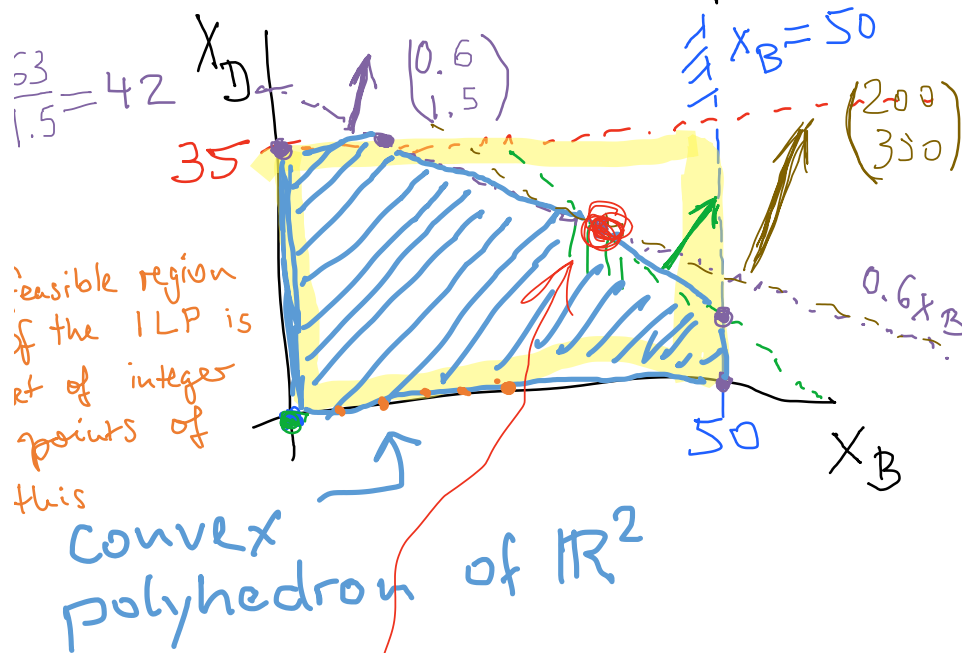 X_D
63
1.5 = 42
(0.6
1.5)
x_B = 50
(200
350)
35
0.6x_B
easible region
f the ILP is
et of integer
points of
this
50
X_B
convex
polyhedron of ℝ²